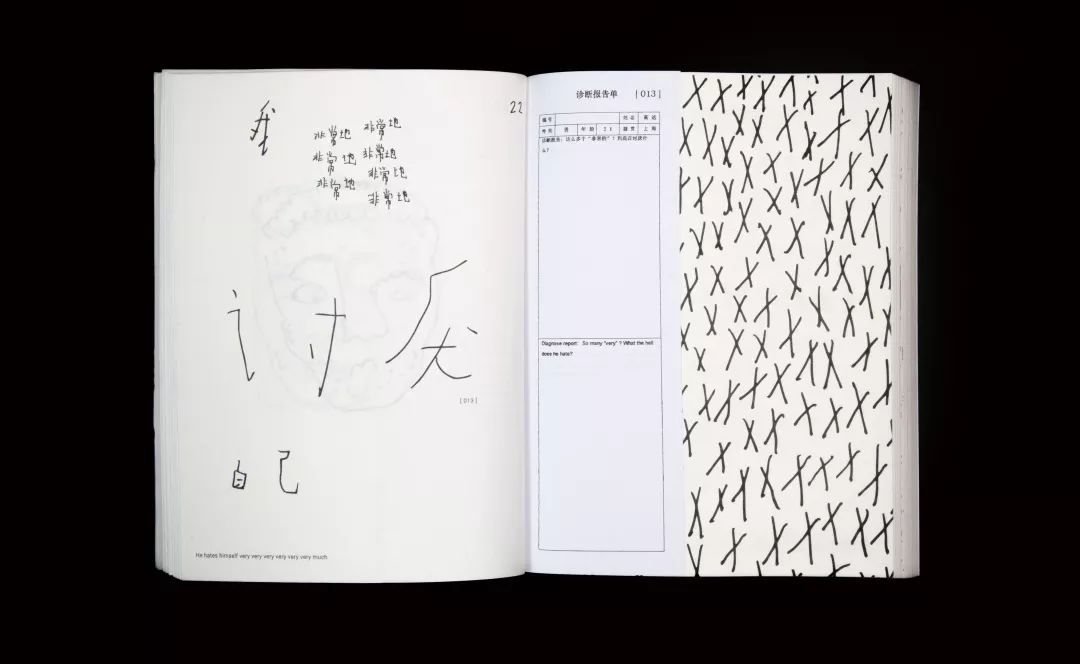 我
22
非常地 非常地
非常地 非常地
非常地 非常地
非常地
讨厌
[013]
自己
He hates himself very very very very very very very much
诊断报告单 [013]
编号 姓名
性别 男 年龄 21 籍贯 上海
诊断报告：这么多个“非常的”！到底在讨厌什
么？
Diagnose report: So many "very" ? What the hell
does he hate?